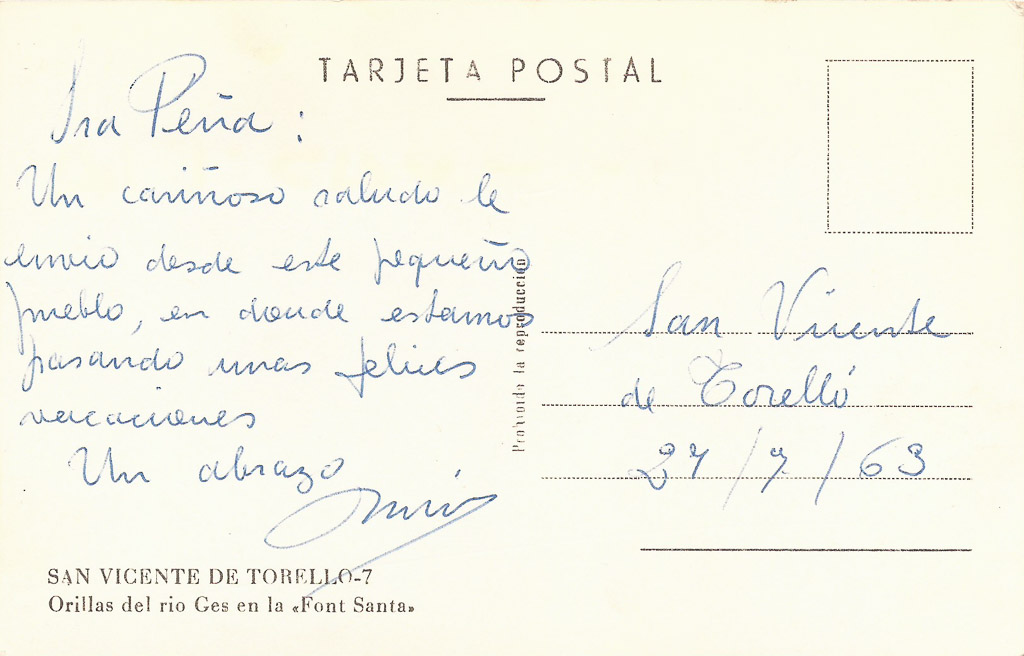 TARJETA POSTAL
Sra Peña :
Un cariñoso saludo le
envio desde este pequeño
pueblo, en donde estamos
pasando unas felices
vacaciones
Un abrazo
San Vicente
de Torelló
27/7/63
Prohibida la reproducción
SAN VICENTE DE TORELLO-7
Orillas del rio Ges en la «Font Santa»